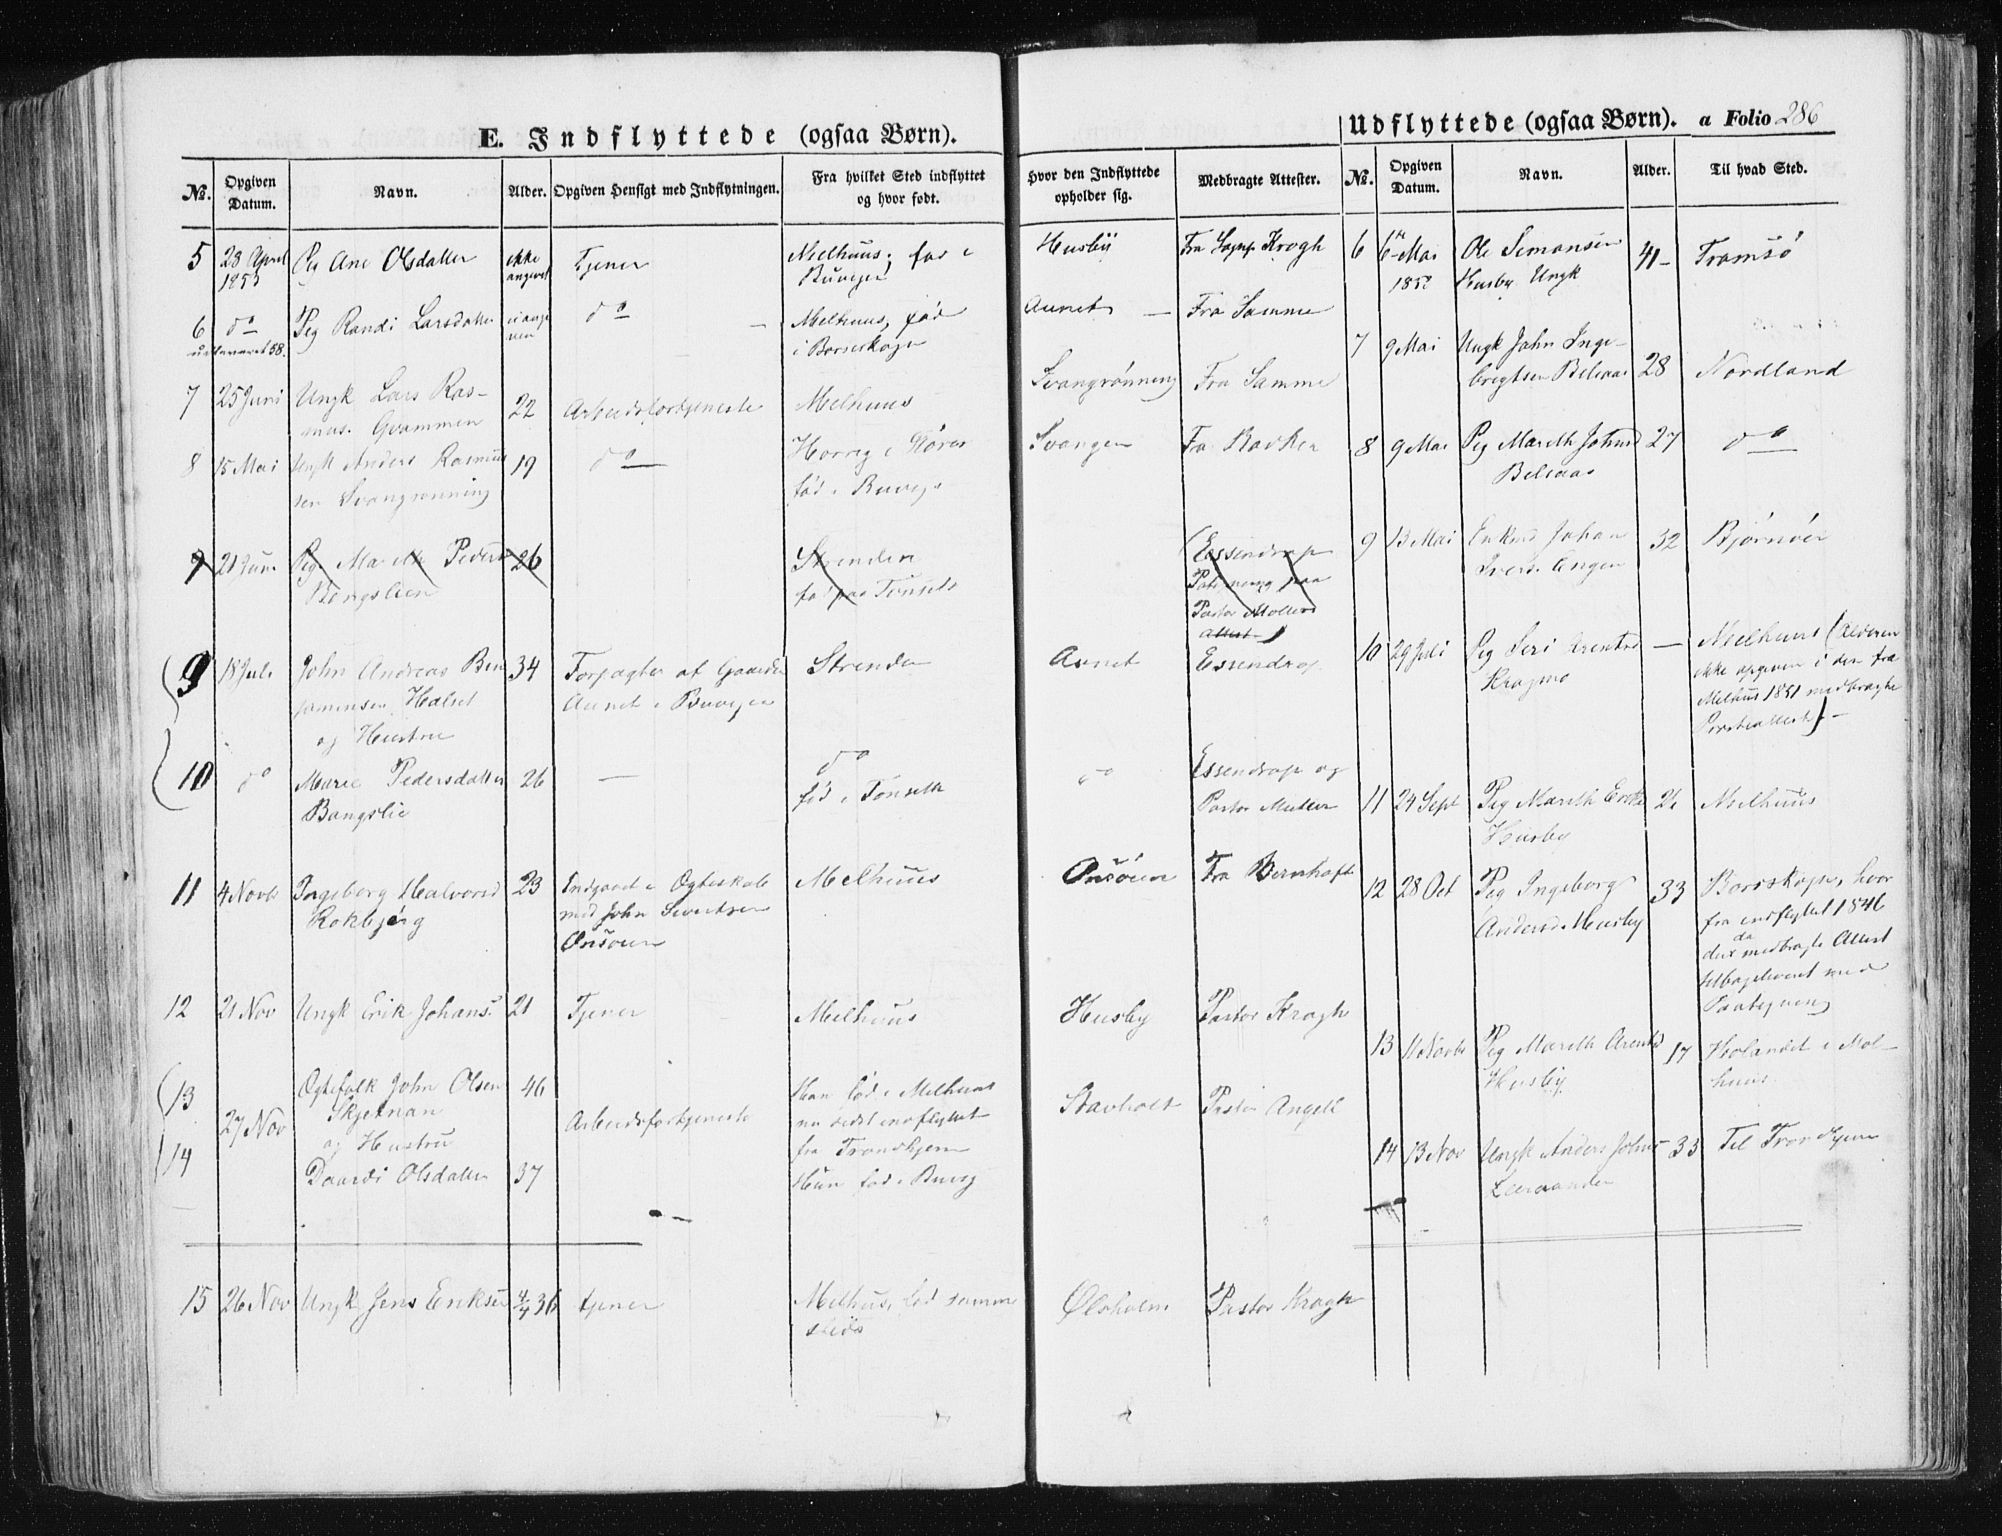 E. Indflyttede (ogsaa Børn).
№. Opgiven Datum. Navn. Alder. Opgiven Hensigt med Indflytningen. Fra hvilket Sted indflyttet og hvor født. Hvor den Indflyttede opholder sig. Medbragte Attester.
5 28 April Pig Ane Olsdatter ikke Tjener Melhuus, fød i Husby Fra Krogh
1853 angivet Buvigen
6 do Pig Randi Larsdatter do Melhuus, fød Aunet Fra Samme
i Børseskogn
7 25 Juni Ungk Lars Ras- 22 Arbeidsfortjeneste Melhuus Svangrønning Fra Samme
mus. Gvammen
8 15 Mai Ungk Anders Rasmus 19 do Horrig i Støren Svangen Fra
sen Svangrønning fød i Buvign
9 21 Juni Pig Mareth Pedersd 26 Strinden Essendrop
Bangslien fød paa Tønset
Pastor Møllers
Attest
9 18 Juli John Andreas Ben 34 Forpagter af Gaarden Strinden Aunet Essendrop
jaminsen Halset Aunet i Buvigen
og Hustru
10 do Marie Pedersdatter 26 — do do Essendrop og
Bangslie fød i Tønseth Pastor Müller
11 4 Novbr Ingeborg Halvorsd 23 Indgaaet i Egteskab Melhuus Onsøien Fra Bernhoft
Rokbjerg med John Sivertsen
Onsøien
12 21 Nov Ungk Erik Johans. 21 Tjener Melhuus Husby Pastor Krogh
13 Egtefolk John Olsen 46 Han fød i Melhuus Stavholt Pastor Angell
Skjetnan nu sidst indflyttet
27 Nov og Hustru Arbeidsfortjeneste fra Trondhjem
14 Daardi Olsdatter 37 Hun fød i Buvig
15 26 Nov Ungk Jens Eriksen 4/4 36 tjener Melhus, fød samme Ølsholm Pastor Krogh
steds
Udflyttede (ogsaa Børn). a Folio 286
№. Opgiven Datum. Navn. Alder. Til hvad Sted.
6 6te Mai Ole Simonsen 41 Tromsø
1853 Husby Ungk
7 9 Mai Ungk John Inge-
brigtsen Belsaas 28 Nordland
8 9 Mai Pig Mareth Johnsd 27 do
Belsaas
9 13 Mai Enkem Johan 32 Bjørnøer
Ivers. Engen
10 29 Juli Pig Seri Arentsd — Melhuus (Alderen
Kragmo ikke opgiven i den fra
Melhuus 1851 medbragte
Præsteattest) —
11 24 Sept Pig Mareth Eriks 26 Melhuus
Husby
12 28 Oct Pig Ingeborg 33 Børsskogn, hvor
Andersd. Husby fra indflyttet 1846
den da medbragte Attest
tilbageleveret med
Paategning
13 11 Novbr Pig Mareth Arentsd 17 Hølandet i Mel-
Husby huus
14 13 Nov Ungk Anders Johns 33 Til Trondhjem
Leeraanden